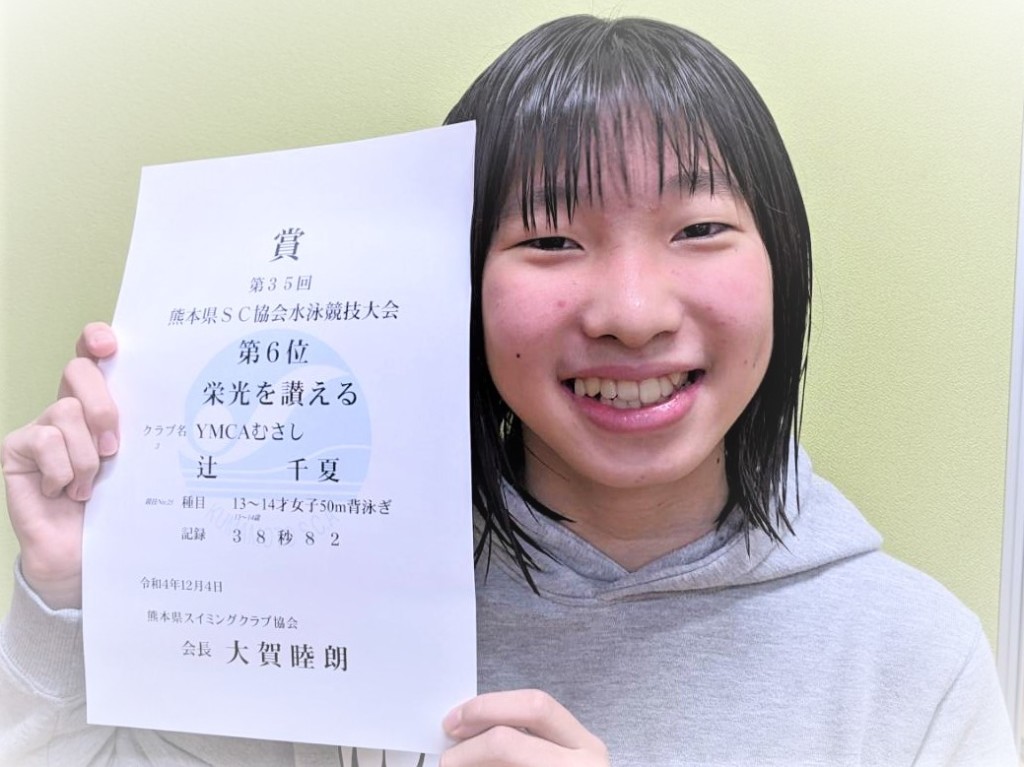 賞
第35回
熊本県SC協会水泳競技大会
第6位
栄光を讃える
クラブ名 YMCAむさし
2
辻 千夏
競技No.25 種目 13～14才女子50m背泳ぎ
13～14歳
記録 38秒82
令和4年12月4日
熊本県スイミングクラブ協会
会長 大賀睦朗